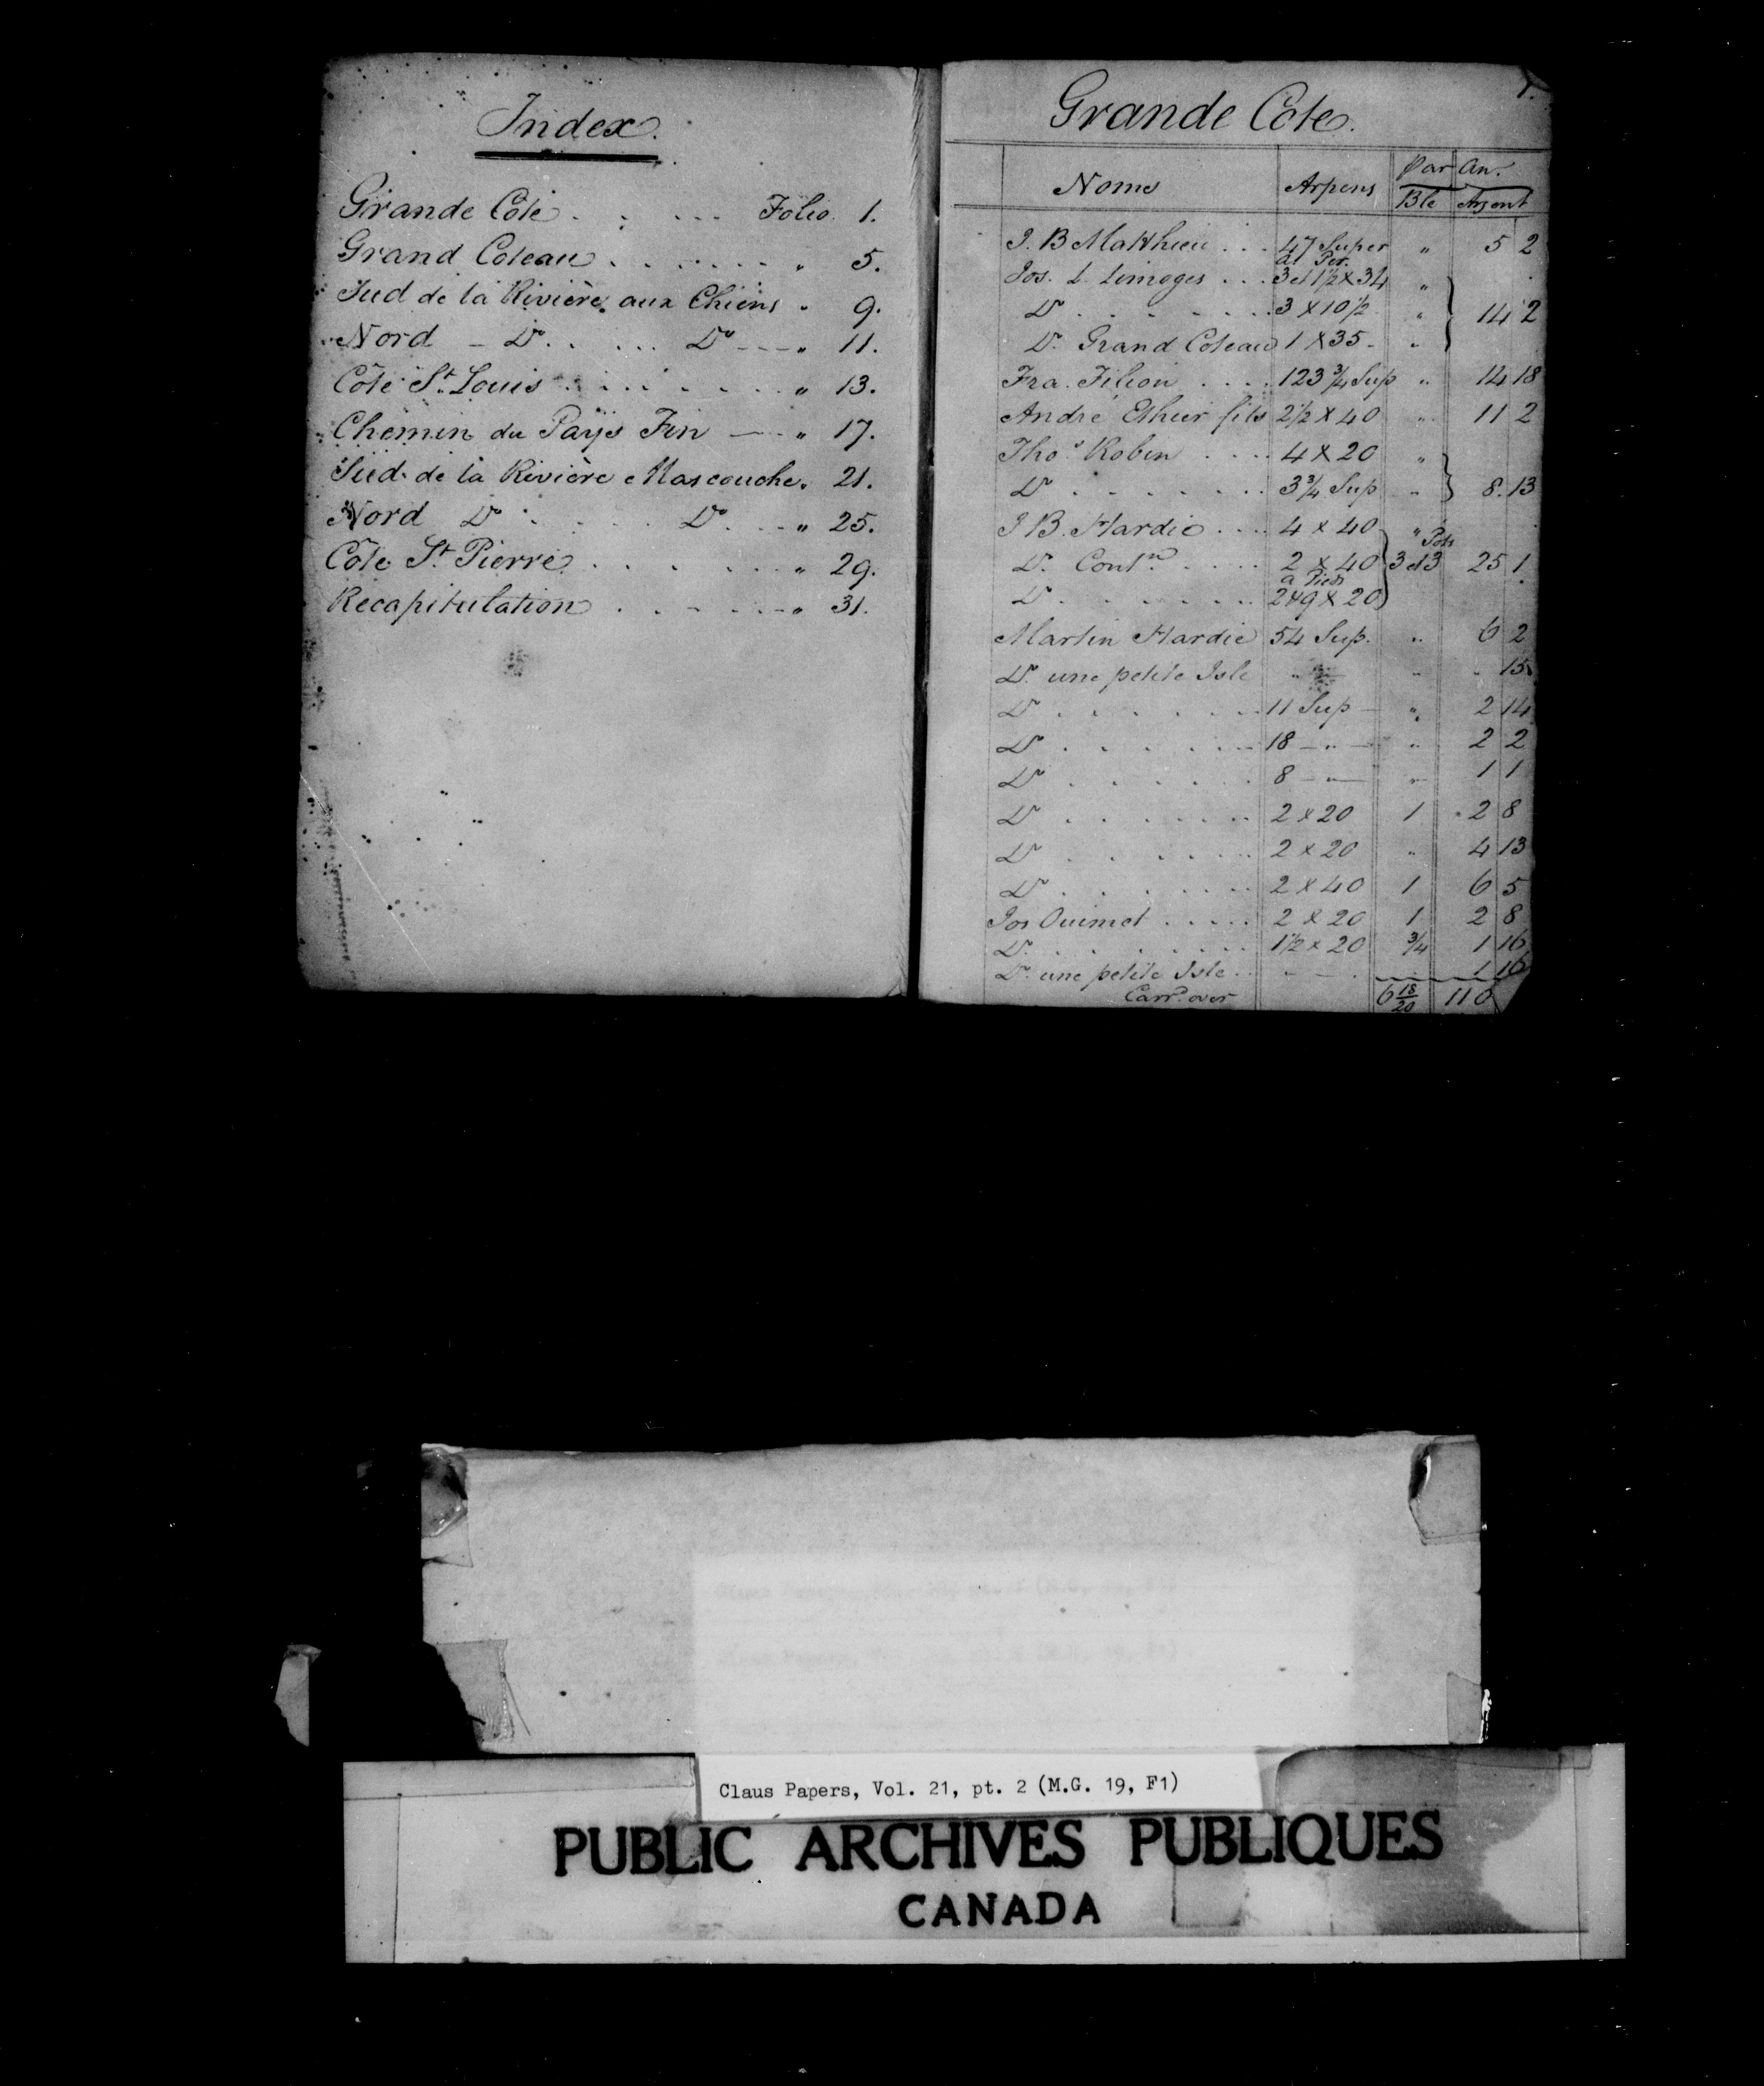 Index.
Grande Côte . . . . . Folio. 1.
Grand Coteau . . . . . . . „ 5.
Sud de la Rivière aux Chiens „ 9.
Nord - Do. . . . . . Do - - - „ 11.
Côte St. Louis . . . . . . . „ 13.
Chemin du Pays Fin — - „ 17.
Sud de la Rivière Mascouche. 21.
Nord Do . . . . . Do . . - - „ 25.
Côte St. Pierre . . . . . . „ 29.
Recapitulation . . . . - - - „ 31.
1.
Grande Cote.
Noms Arpens Par An.
Ble Argent
J. B Matthieu . . . 47 Super „ 5 2
a. Per.
Jos. L. Limoges . . . 3 et 1½ x 34 „
Do . . . . . . . 3 x 10½ „ } 14 2
Do. Grand Coteau 1 x 35 - „
Fra. Filion . . . . 123¾ Sup „ 14 18
André Ethier fils 2½ x 40 „ 11 2
Thos. Robin . . . . 4 x 20 „
Do . . . . . . . 3¾ Sup „ } 8. 13
J B. Hardie . . . . 4 x 40 „ Pots
Do. Contn. . . . . 2 x 40 } 3 et 3 25 1
a Pieds
Do . . . . . . . 2 x 9 x 20
Martin Hardie 54 Sup. „ 6 2
Do. une petite Isle „ „ „ 15
Do . . . . . . . 11 Sup - „ 2 14
Do . . . . . . . 18 - „ - „ 2 2
Do . . . . . . . 8 - „ - „ 1 1
Do . . . . . . . 2 x 20 1 2 8
Do . . . . . . . 2 x 20 „ 4 13
Do . . . . . . . 2 x 40 1 6 5
Jos Ouimet . . . . . 2 x 20 1 2 8
Do. . . . . . . . 1½ x 20 ¾ 1 16
Do. une petite Isle . . - - . 1 16
Carrd. over 6 18/20 110
Claus Papers, Vol. 21, pt. 2 (M.G. 19, F1)
PUBLIC ARCHIVES PUBLIQUES
CANADA